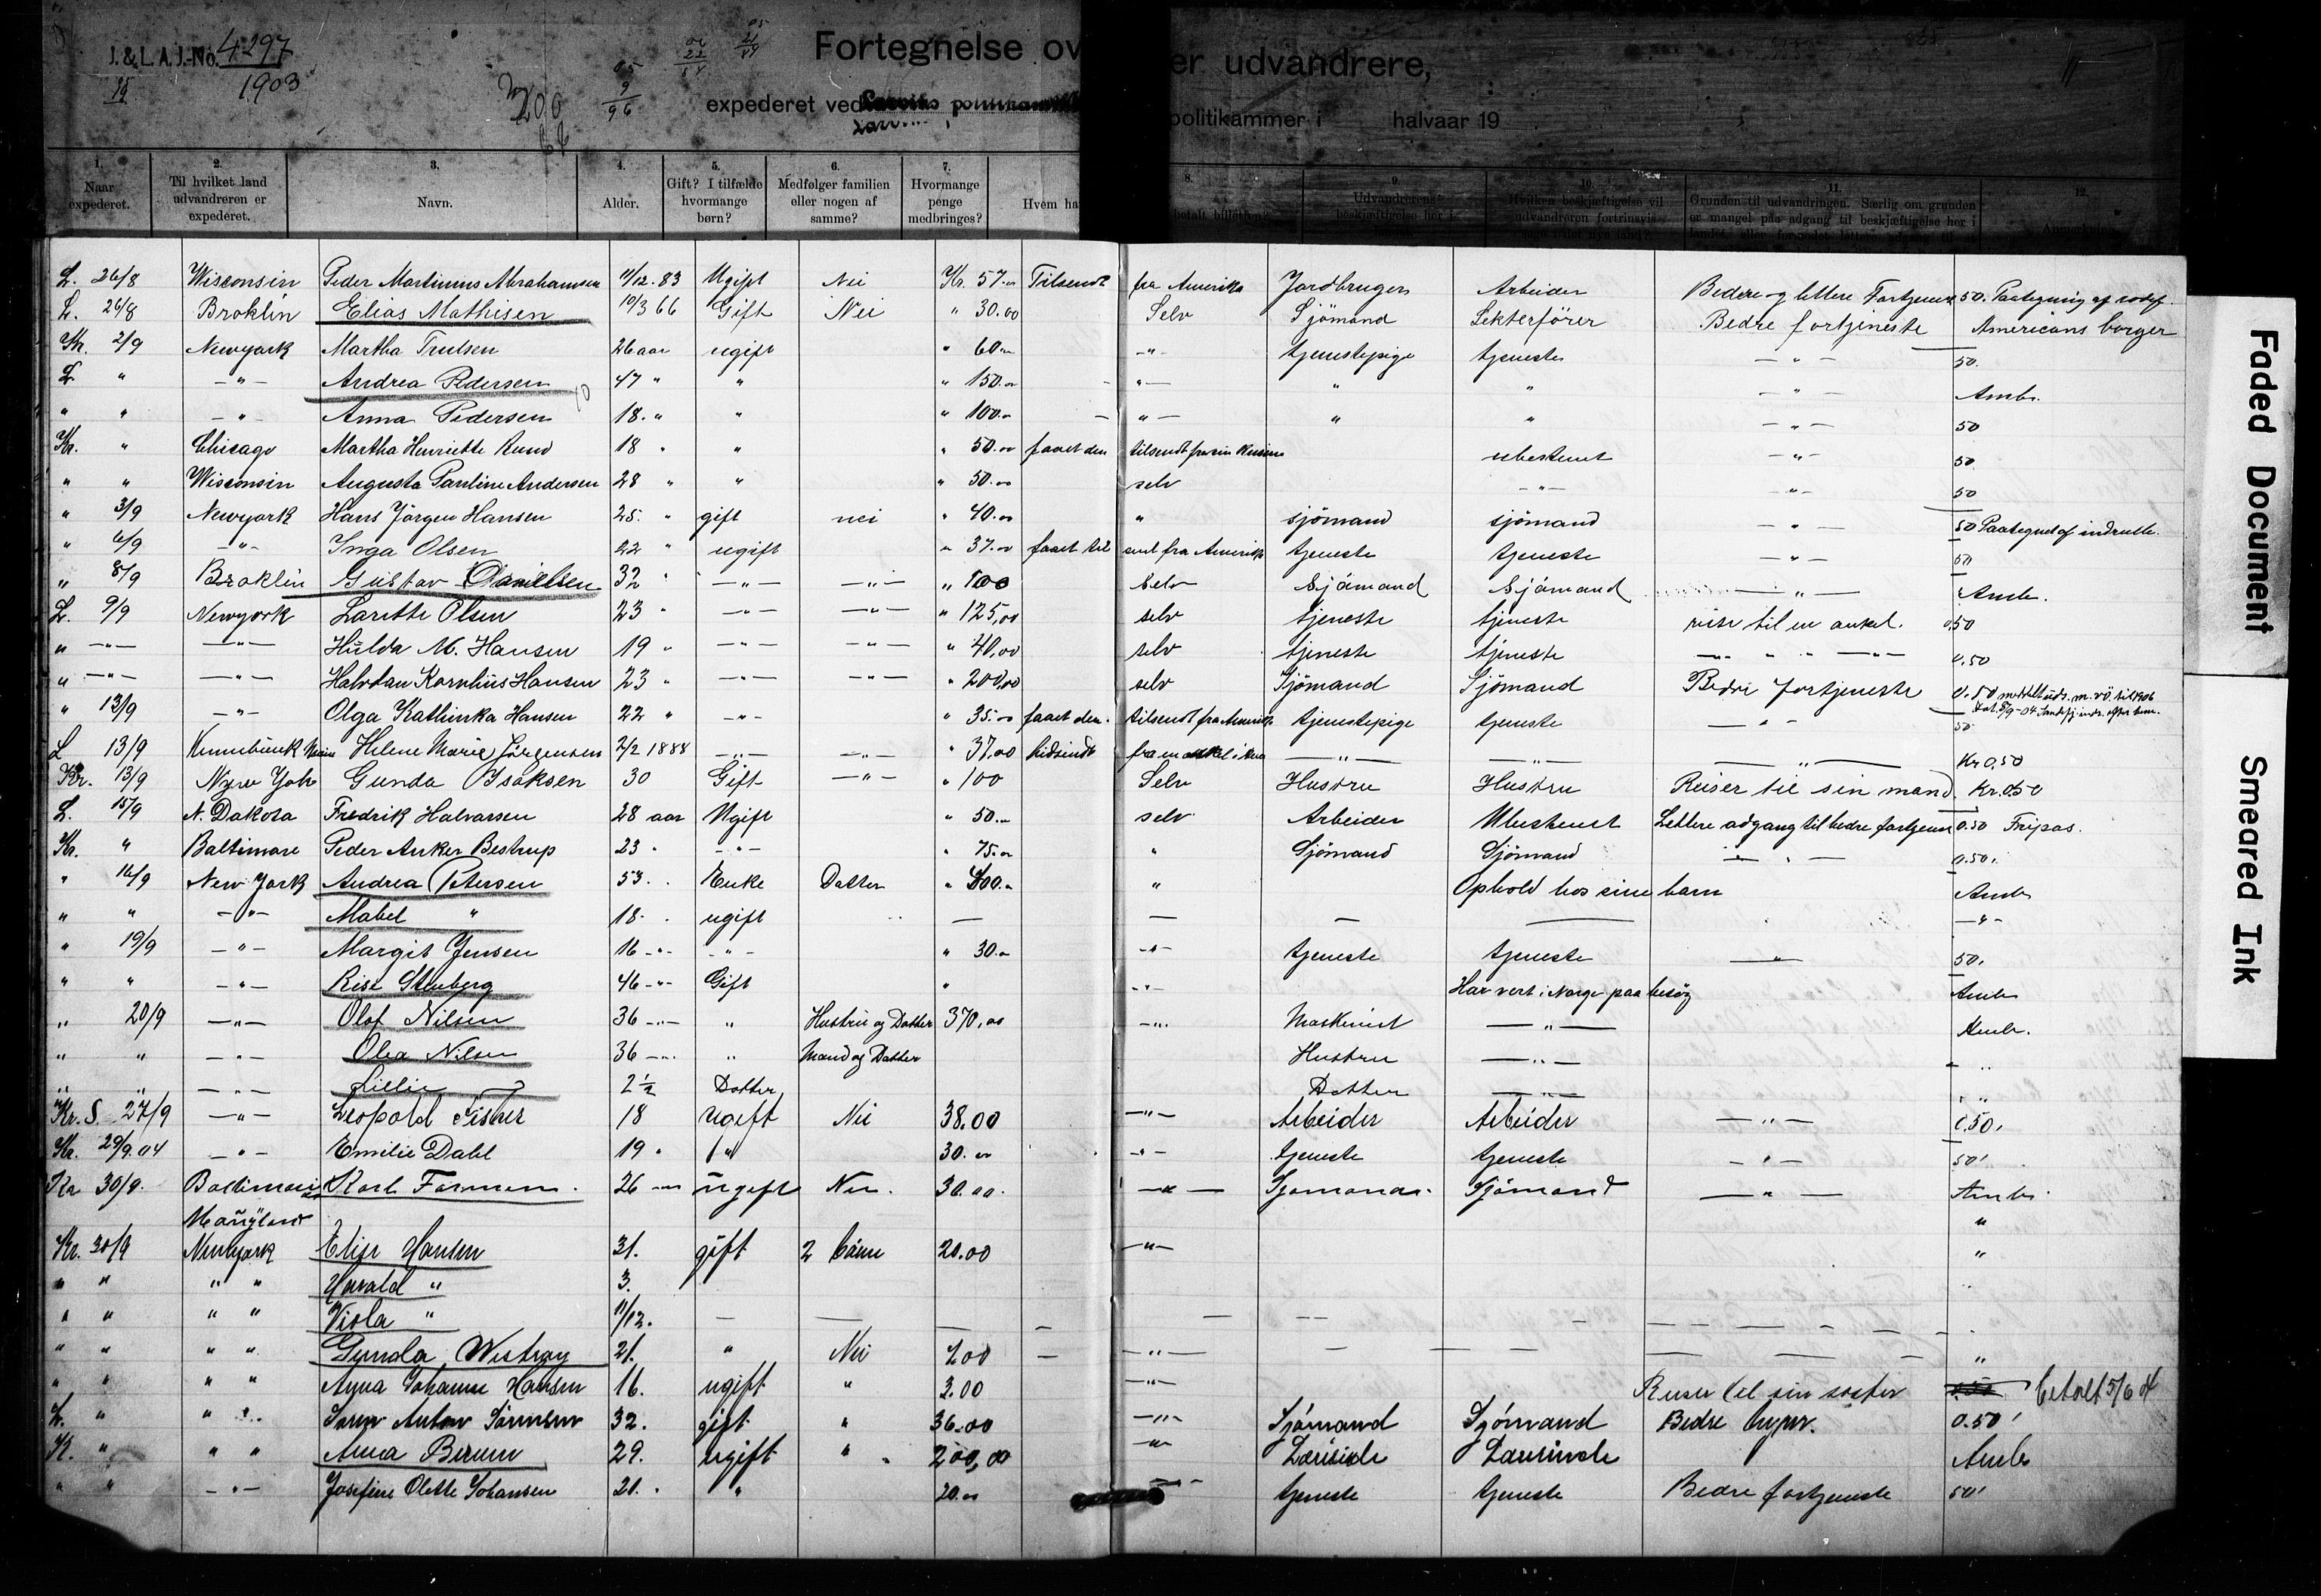 J. & L. A. J.-No. 4297
1903
Fortegnelse ov er udvandrere,
expederet ved Larviks politikammer
politikammer i halvaar 19
1. Naar expederet.
2. Til hvilket land udvandreren er expederet.
3. Navn.
4. Alder.
5. Gift? I tilfælde hvormange børn?
6. Medfølger familien eller nogen af samme?
7. Hvormange penge medbringes?
Hvem ha
8. betalt billetten?
9. Udvandrerens beskjæftigelse her i
10. Hvilken beskjæftigelse vil udvandreren fortrinsvis
11. Grunden til udvandringen. Særlig om grunden er mangel paa adgang til beskjæftigelse her i
12.
L. 26/8 Wisconsin Peder Martinius Abrahamsen 11/12. 83 Ugift Nei Kr. 57.00 Tilsendt fra Amerika Jordbruger Arbeider Bedre og lettere Fortjeneste 50. Paategning af
L. 26/8 Broklin Elias Mathisen 10/3 66 Gift Nei " 30.00 Selv Sjömand Lekterförer Bedre fortjeneste Americans borger
Kr. 2/9 Newyark Martha Trulsen 26 aar ugift " 60.- -"- tjenestepige tjeneste -"- 50.
L " -"- Andrea Pedersen 47 " " " 150.00 "- " " -"- Amb.
" " -"- Anna Pedersen 18. " " " 100.- "- " " -"- 50
Kr. " Chicago Martha Henriette Rund 18 " " " 50.00 faaet den tilsendt fra sin Kusine ubestemt -"- 50
" " Wisconsin Augusta Pauline Andersen 28 " " " 50.00 selv -"- -"- 50
" 3/9 Newyark Hans Jörgen Hansen 25. " gift nei " 40.00 " sjömand sjömand -"- 50 Paategnet af indrulle.
" 6/9 -"- Inga Olsen 22 " ugift " 37.00 faaet til sent fra Amerika tjeneste tjeneste -"- 50
" 8/9 Broklin Gustav Danielsen 32 " -"- -"- " 100 Selv Sjömand Sjömand -"- Amb.
L. 9/9 Newyork Laritte Olsen 23 " -"- -"- " 125,00 selv tjeneste tjeneste reise til en onkel. 0,50
" -"- -"- Hulda M. Hansen 19 " -"- -"- " 40,00 selv tjeneste tjeneste -"- " " -"- 0,50
" -"- -"- Halvdan Kornelius Hansen 23 " -"- -"- " 200,00 selv Sjömand Sjömand Bedre fortjeneste 0.50
" 13/9 -"- Olga Kathinka Hansen 22 " -"- " 35.00 faaet den tilsendt fra Amerika tjenestepige tjeneste -"- 50
L 13/9 Helene Marie Jörgensen 2/2 1888 -"- -"- " 37,00 hidsendt fra en onkel i -"- -"- -"- Kr 0,50
Kr. 13/9 Nyw Joh Gunda Isaksen 30 Gift -"- " 100 Selv Hustru Hustru Reiser til sin mand. Kr. 0.50
L. 15/9 N. Dakota Fredrik Halvarsen 28 aar Ugift " 50.- selv Arbeider Ubestemt Lettere adgang til bedre fortjen 0.50 Fripas.
Kr. " Baltimore Peder Anker Bestrup 23 " -"- " 75.00 " Sjömand Sjömand -"- 0.50.
" 16/9 New York Andrea Petersen 53. . Enke Datter " 400.- " Ophold hos sine barn Amb
" " -"- Mabel " 18. . ugift — — — — -"-
" 19/9 -"- Margit Jensen 16 -"- -"- " 30.- -"- tjeneste tjeneste -"- 50.
" " -"- Rise Stenberg 46 -"- Gift " -"- Har vert i Norge paa besög Amb
" 20/9 -"- Olaf Nilsen 36 -"- " Hustru og Datter 370,00 -"- Maskinist -"- Amb.
" " -"- Olea Nilsen 36 -"- " Mand og Datter Hustru -"- "
" " -"- Lillie 2 1/2 Datter Datter -"- "
Kr. S. 27/9 -"- Leopold Fisher 18 ugift Nei 38.00 -"- Arbeider Arbeider -"- 0.50.
Kr. 29/9.04 -"- Emilie Dahl 19 " " 30.00 -"- tjeneste tjeneste -"- 50
Kr 30/9. Baltimore Karl 26 ugift Nei. 30.00. -"- Sjömand Sjömand -"- Amb.
Maryland "
Kr. 30/9 Newyork Hansen 31. gift 2 börn 20.00 -"- "
" " " " Harald " 3.
" " " " Viola " 11/12. — — — — — — —
" " " " Gunda 21. " Nei 200 — -"- — — — — "
" " " " Anna Johanne Hansen 16. ugift " 3.00 -"- Reiser til sin søster 0.50 betalt 5/6 04
L. " " " Anton 32. gift " 36.00 -"- Sjömand Sjömand Bedre 0.50
K. " " " Anna 29. ugift " 200,00 -"- Lærerinde Lærerinde Amb
" " -"- Josefine Olette Johansen 21. " " 20.00 -"- tjeneste tjeneste Bedre fortjeneste 50
Faded Document
Smeared Ink